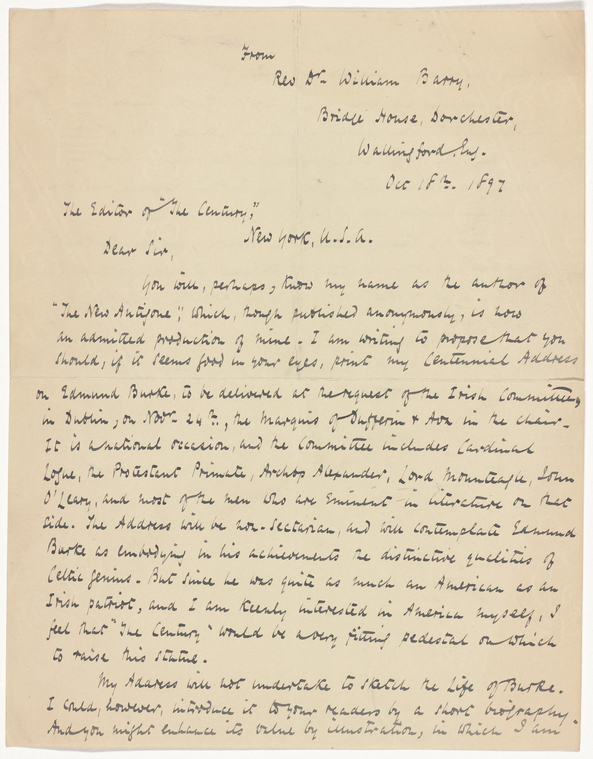 From
Rev Dr. William Barry,
Bridge House, Dorchester,
Wallingford, Eng.
Oct 18th. 1897
The Editor of "The Century,"
New York, U.S.A.
Dear Sir,
You will, perhaps, know my name as the author of
"The New Antigone", which, though published anonymously, is now
an admitted production of mine. I am writing to propose that you
should, if it seems good in your eyes, print my Centennial Address
on Edmund Burke, to be delivered at the request of the Irish Committee,
in Dublin, on Novr. 24th., the Marquis of Dufferin & Ava in the chair.
It is a national occasion, and the Committee includes Cardinal
Logue, the Protestant Primate, Archbp Alexander, Lord Monteagle, John
O'Leary, and most of the men who are eminent in literature on that
side. The Address will be non-sectarian, and will contemplate Edmund
Burke as embodying in his achievements the distinctive qualities of
Celtic genius. But since he was quite as much an American as an
Irish patriot, and I am keenly interested in America myself, I
feel that "The Century" would be a very fitting pedestal on which
to raise this statue.
My Address will not undertake to sketch the Life of Burke.
I could, however, introduce it to your readers by a short biography.
And you might enhance its value by illustration, in which I am